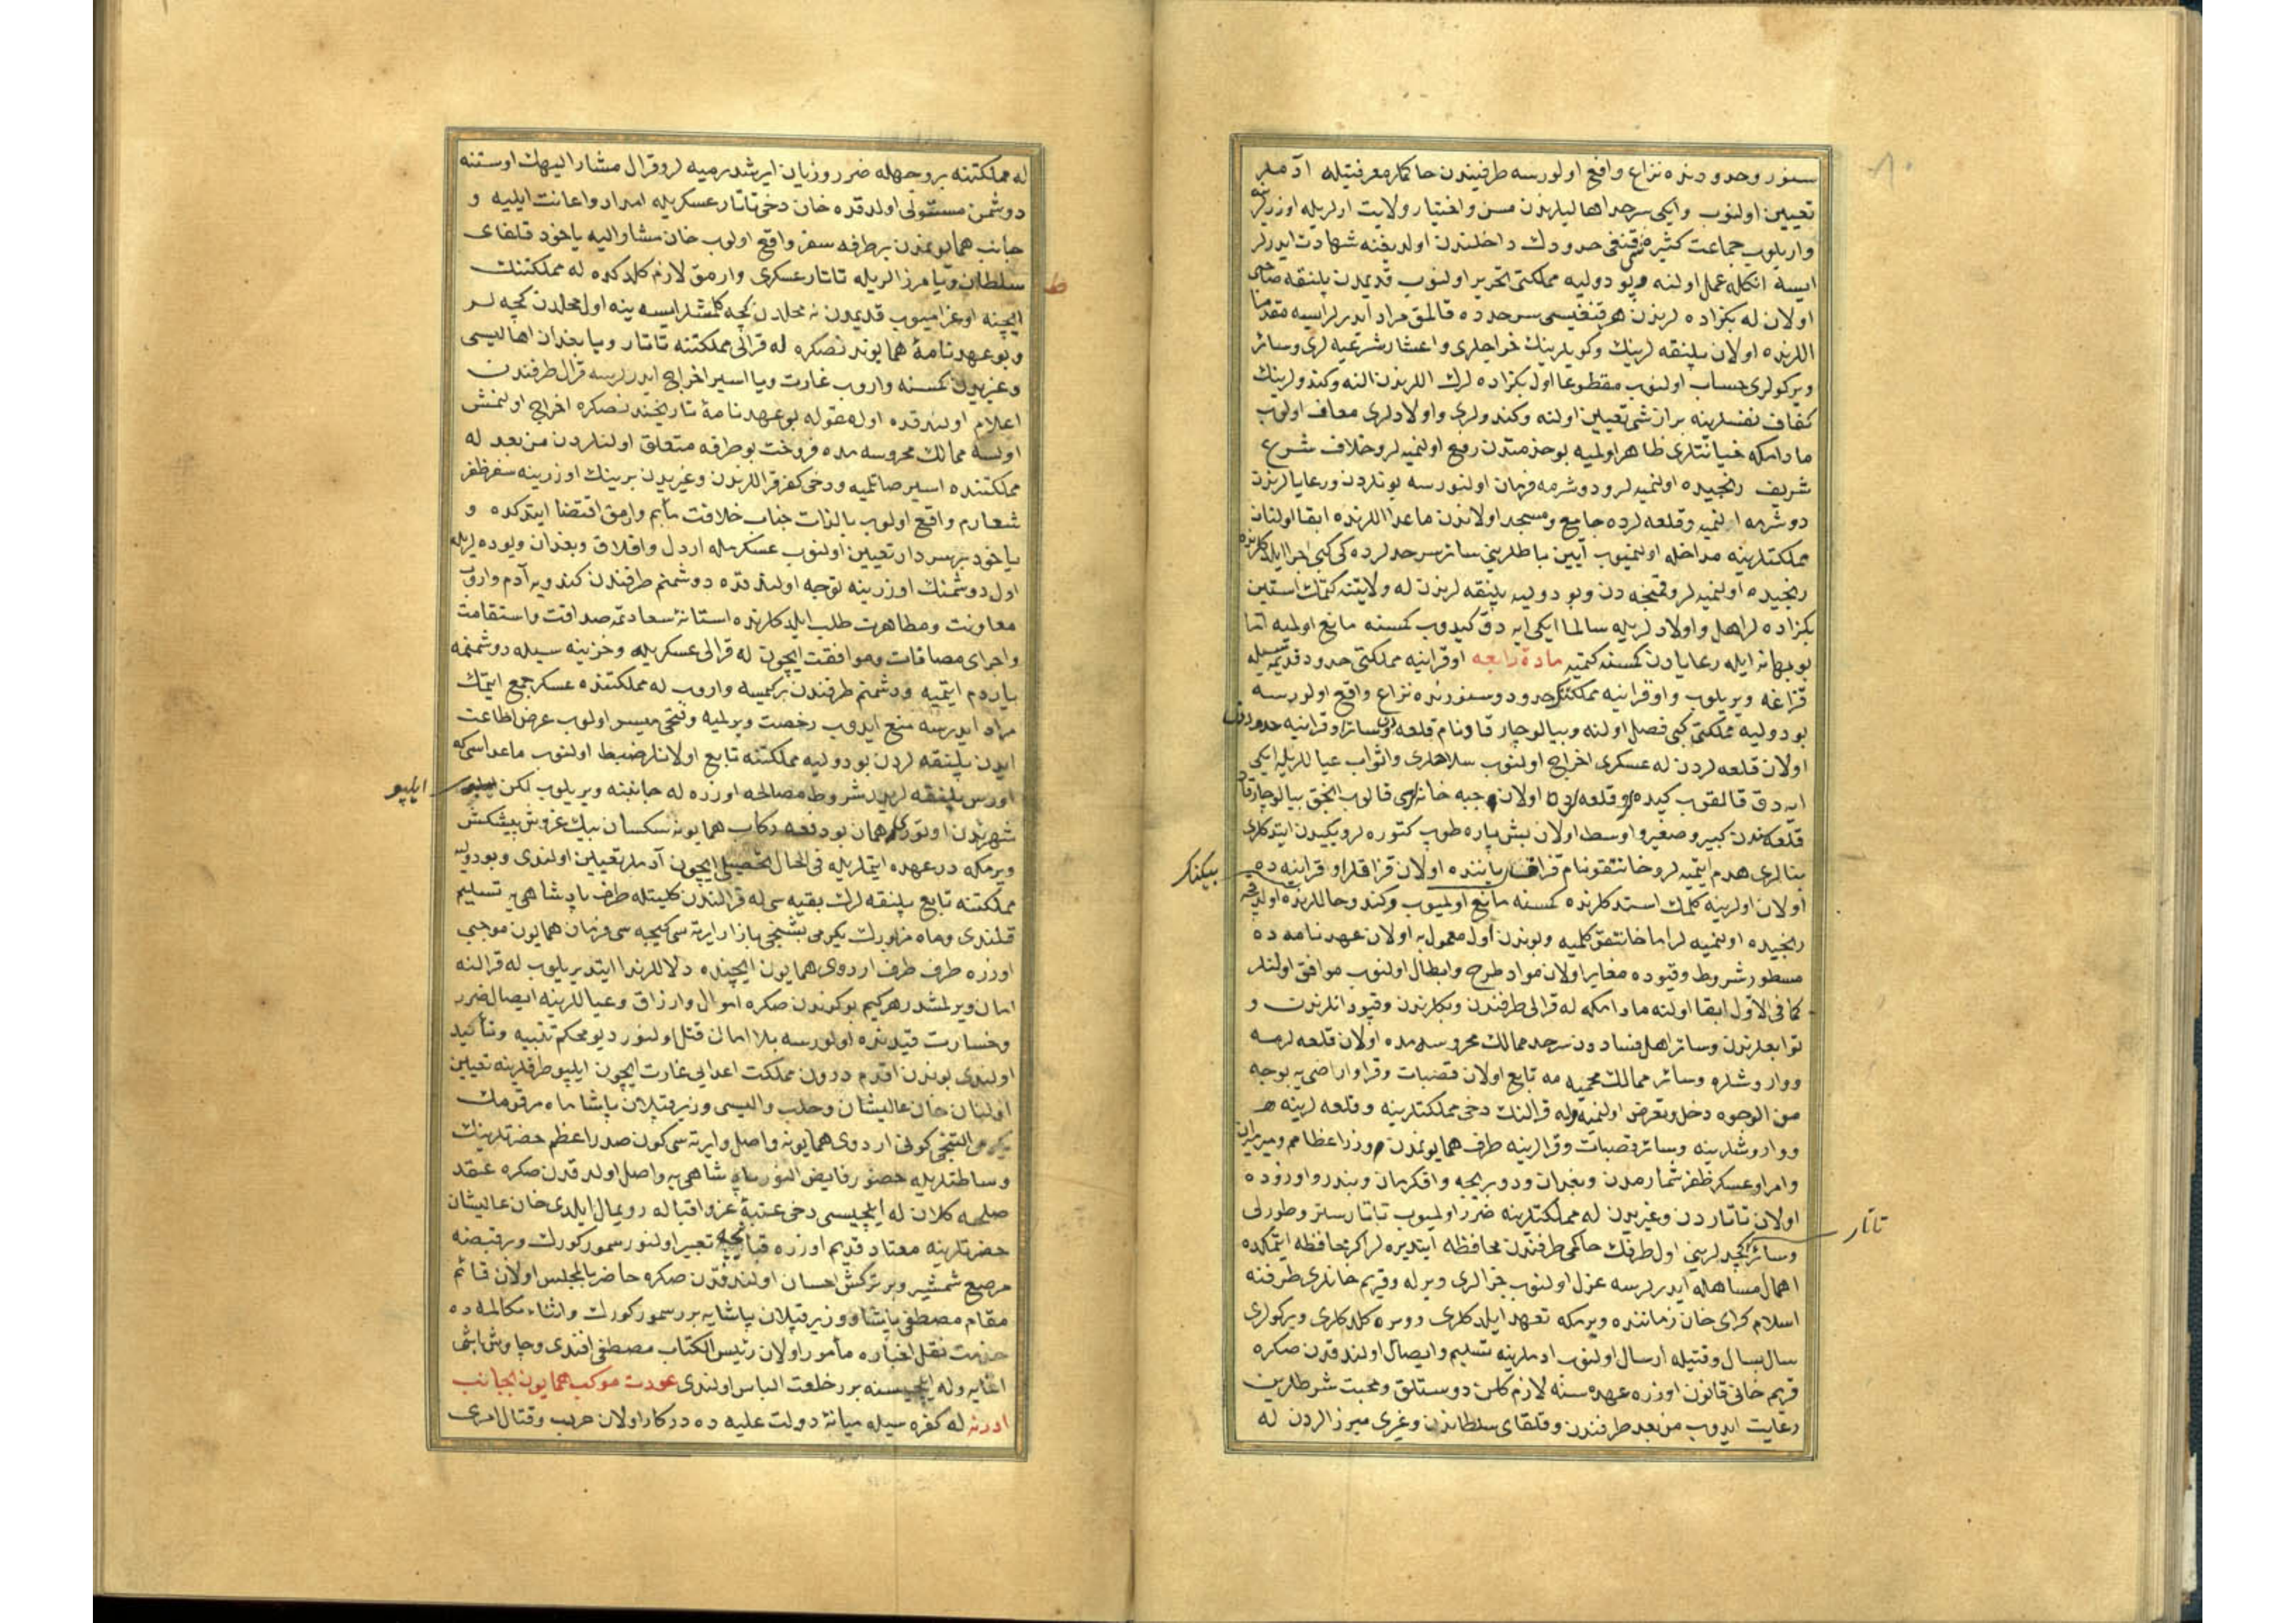 سنور وحدودنده نزاع واقع اولورسه طرفيندن حاكملر معرفتيله آدملر
تعيين اولنوب وايكى سرحد اهاليلرندن مسن واختيار ولايت ارلريله اوزرلرينه
واريلوب جماعت كثيره قنغى حدودك داخلندن اولديغنه شهادت ايدرلر
ايسه انكله عمل اولنه وپودوليه مملكتى تحرير اولنوب قديمدن پلنقه صاحبى
اولان له بكزاده لرندن هر قنغيسى سرحدده قالمق مراد ايدرلرايسه مقدما
اللرنده اولان پلنقه لرينك وكويلرينك خراجلرى واعشار شرعيه لرى وسائر
ويركولرى حساب اولنوب مقطوعا اول بكزاده لرك اللرندن النه وكندولرينك
كفاف نفسلرينه براز شى تعيين اولنه وكندولرى واولادلرى معاف اولوب
مادامكه خيانتلرى ظاهر اولميه بو خدمتدن رفع اولنميه لر وخلاف شرع
شريف رنجيده اولنميه لر ودوشرمه فرمان اولنورسه بونلردن ورعايالرندن
دوشرمه النميه وقلعه لرده جامع ومسجد اولاندن ماعدا اللرنده ابقا اولنان
مملكتلرينه مداخله اولنميوب آيين باطلرينى سائر سرحدلرده كى كبى اجرا ايلدكلرنده
رنجيده اولنميه لر وقمنيجه دن وپودوليه پلنقه لرندن له ولايتنه كتمك استين
بكزاده لر اهل واولادلريله سالما ايكى ايه دق كيدوب كمسنه مانع اولميه اما
بو بهانه ايله رعايادن كمسنه كتميه مادۀ رابعه اوقراينه مملكتى حدود قديمه سيله
قزاغه ويريلوب واوقراينه مملكتنك حدود وسنورنده نزاع واقع اولورسه
پودوليه مملكتى كبى فصل اولنه وبيالوچارقاو نام قلعه دن وسائر اوقراينه حدودنده
اولان قلعه لردن له عسكرى اخراج اولنوب سلاحلرى واثواب عياللريله ايكى
ايه دق قالقوب كيده لر وقلعه لرده اولان جبه خانه لرى قالوب انجق بيالوچارقاو
قلعه سندن كبير وصغير واوسط اولان بش پاره طوپ كتوره لر ويكيدن ايتدكلرى
بنالرى هدم ايتميه لر وخاننقو نام قزاق ياننده اولان قزاقلر اوقراينه ده
بيكنك
اولان اولرينه كلمك استدكلرنده كمسنه مانع اولميوب وكندو حاللرنده اولديقجه
رنجيده اولنميه لر اما خاننقو كلميه وبوندن اول معمول به اولان عهدنامه ده
مسطور شروط وقيوده مغاير اولان مواد طرح وابطال اولنوب موافق اولنلر
كما فى الاول ابقا اولنه مادامكه له قرالى طرفندن وبكلرندن وقپودانلرندن و
توابعلرندن وسائر اهل فساددن سرحد ممالك محروسه مده اولان قلعه لرمه
وواروشلره وسائر ممالك محميه مه تابع اولان قصبات وقرا واراضى يه بوجه
من الوجوه دخل وتعرض اولنميه وله قرالنك دخى مملكتلرينه وقلعه لرينه
وواروشلرينه وسائر قصبات وقرالرينه طرف همايونمدن وزراء عظامم وميرميران
وامرا وعسكر ظفر شمارمدن وبغدان ودوبريجه واقكرمان وبندر واوزوده
اولان تاتاردن وغيريدن له مملكتلرينه ضرر اولميوب تاتار سلتر وطورلى
تاتار
وسائر كچدلرينى اول طرفك حاكمى طرفندن محافظه ايتديره لر اكر محافظه ايتمكده
اهمال ومساهله ايدرلرسه عزل اولنوب جزالرى ويرله وقريم خانلرى طرفنه
اسلام كراى خان زماننده ويرمكه تعهد ايلدكلرى وويره كلدكلرى ويركولرى
سال بسال وقتيله ارسال اولنوب ادملرينه تسليم وايصال اولندقدن صكره
قريم خانى قانون اوزره عهده سنه لازم كلن دوستلق ومحبت شرطلرين
رعايت ايدوب من بعد طرفندن وقلقاى سلطاندن وغيرى ميرزالردن له
له مملكتنه بر وجهله ضرر وزيان ايرشديرميه لر وقرال مشار اليهك اوستنه
دوشمن مستولى اولدقده خان دخى تاتار عسكريله امداد واعانت ايليه و
جانب همايونمدن بر طرفه سفر واقع اولوب خان مشار اليه ياخود قلقاى
سلطان ويا مرزالريله تاتار عسكرى وارمق لازم كلدكده له مملكتنك
ط
ايچنه اوغراميوب قديمدن نه محلدن كچه كلمشلرايسه ينه اول محلدن كچه لر
وبو عهدنامۀ همايوندنصكره له قرالى مملكتنه تاتار ويا بغدان اهاليسى
وغيريدن كمسنه واروب غارت ويا اسير اخراج ايدرلرسه قرال طرفندن
اعلام اولندقده اول مقوله بو عهدنامۀ تاريخندنصكره اخراج اولنمش
اولسه ممالك محروسه مده فروخت بو طرفه متعلق اولنلردن من بعد له
مملكتنده اسير صاتلميه ودخى كفر قراللرندن وغيريدن برينك اوزرينه سفر ظفر
شعارم واقع اولوب بالذات جناب خلافت مأبم وارمق اقتضا ايتدكده و
ياخود بر سردار تعيين اولنوب عسكرمله اردل وافلاق وبغدان ويوده لريله
اول دوشمنك اوزرينه توجه اولندقده دوشمنم طرفندن كندويه آدم واروب
معاونت ومظاهرت طلب ايلدكلرنده استانۀ سعادتمه صداقت واستقامت
واجراى مصافات وموافقت ايچون له قرالى عسكريله وخزينه سيله دوشمنمه
ياردم ايتميه ودشمنم طرفندن بر كيمسه واروب له مملكتنده عسكر جمع ايتمك
مراد ايدرسه منع ايدوب رخصت ويرلميه وفتحى ميسر اولوب عرض اطاعت
ايدن پلنقه لردن پودوليه مملكتنه تابع اولانلر ضبط اولنوب ماعداسى كه
اورس پلنقه لريدر شروط مصالحه اوزره له جانبنه ويريلوب لكن
ايلپو
شهرندن اوتورى همان بو دفعه ركاب همايونه سكسان بيك غروش پيشكش
ويرمكه در عهده ايتملريله فى الحال تحصيلى ايچون آدملر تعيين اولندى وپودوليه
مملكتنه تابع پلنقه لرك بقيه سى له قرالندن كليتله طرف پادشاهى يه تسليم
قلندى وماه مزبورك يكرمى بشنجى بازار ايرته سى كيجه سى فرمان همايون موجبى
اوزره طرف طرف اردوى همايون ايچنده دلاللر ندا ايتديريلوب له قرالنه
امان ويرلمشدر هر كيم بوكوندن صكره اموال وارزاق وعياللرينه ايصال ضرر
وخسارت قيدنده اولورسه بلا امان قتل اولنور ديو محكم تنبيه وتأكيد
اولندى بوندن اقدم درون مملكت اعدايى غارت ايچون ايلپو طرفلرينه تعيين
اولنان خان عاليشان وحلب واليسى وزير قپلان پاشا ماه مرقومك
يكرمى التنجى كونى اردوى همايونه واصل وايرته سى كون صدر اعظم حضرتلرينك
وساطتلريله حضور فايض النور پادشاهى يه واصل اولدقدن صكره عقد
صلحه كلان له ايلچيسى دخى عتبۀ عز واقباله رويمال ايلدى خان عاليشان
حضرتلرينه معتاد قديم اوزره قپانيچه تعبير اولنور سمور كورك وبر قبضه
مرصع شمشير وبر تركش احسان اولندقدن صكره حاضر بالمجلس اولان قائم
مقام مصطفى پاشا ووزير قپلان پاشايه برر سمور كورك واثناء مكالمه ده
خدمت نقل اخباره مأمور اولان رئيس الكتاب مصطفى افندى وچاوش باشى
اغايه وله ايلچيسنه برر خلعت الباس اولندى عودت موكب همايون بجانب
ادرنه له كفره سيله ميانۀ دولت عليه ده دركار اولان حرب وقتال امرى